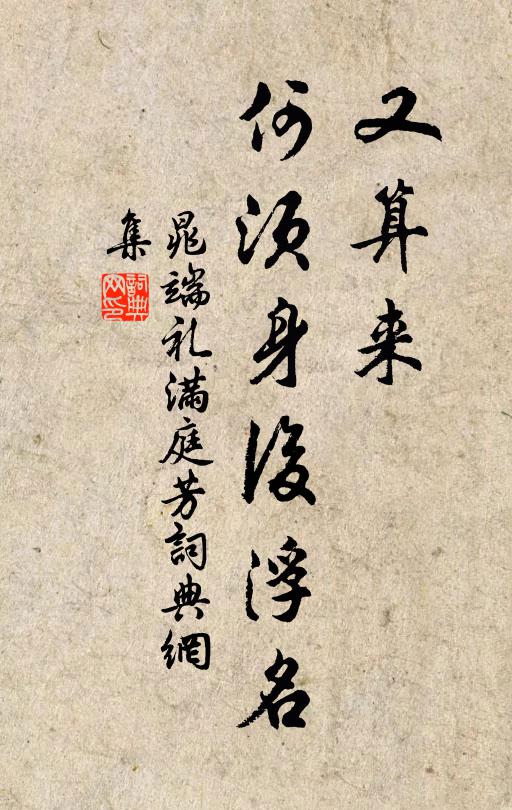 又算来
何须身後浮名
晁端礼满庭芳詞典網
集
詞典
网印